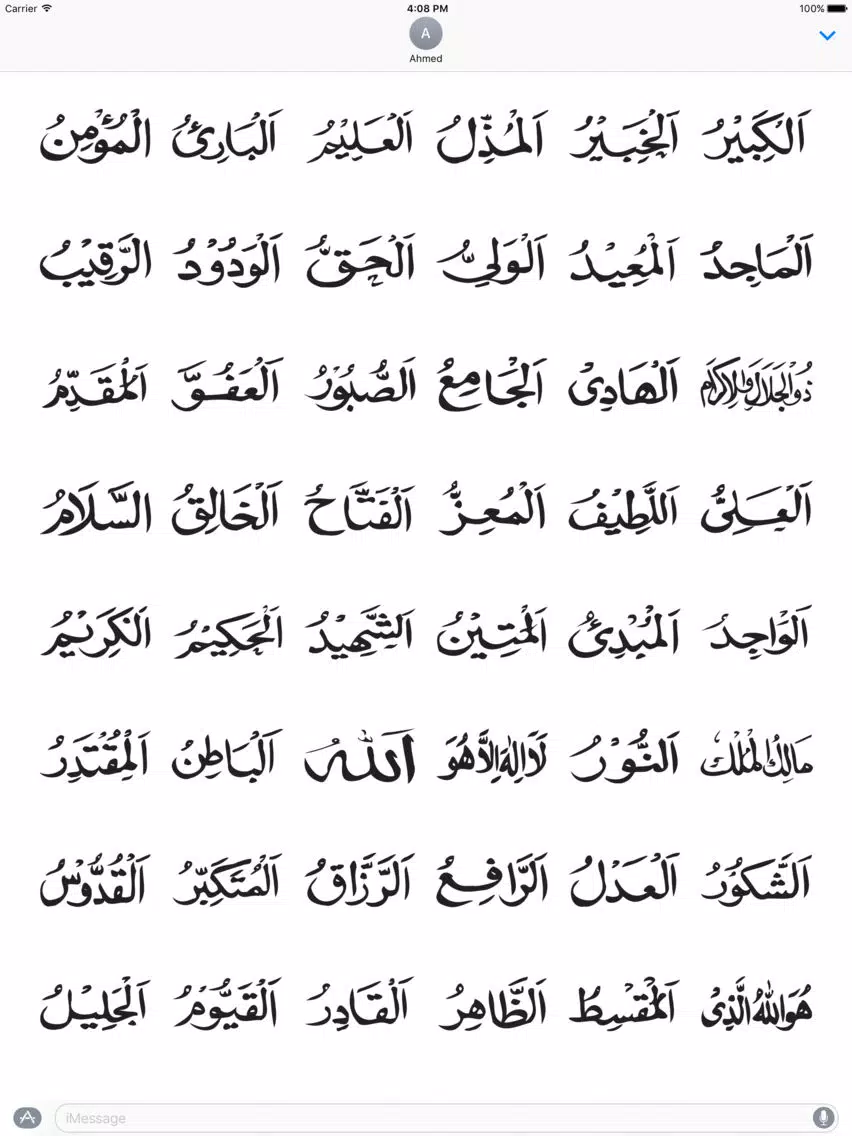 Carrier 4:08 PM 100%
A
Ahmed
اَلْكَبِيْرُ اَلْخَبِيْرُ اَلْمُذِلُّ اَلْعَلِيْمُ اَلْبَارِئُ الْمُؤْمِنُ
اَلْمَاجِدُ اَلْمُعِيْدُ اَلْوَلِيُّ اَلْحَقُّ اَلْوَدُوْدُ الرَّقِيْبُ
ذُوالْجَلَالِ وَالْاِكْرَام اَلْهَادِىْ اَلْجَامِعُ اَلصَّبُوْرُ اَلْعَفُقَّ اَلْمُقَدِّمُ
اَلْعَلِىُّ اَللَّطِيْفُ اَلْمُعِزُّ اَلْفَتَّاحُ اَلْخَالِقُ السَّلَامُ
اَلْوَاجِدُ اَلْمُبْدِئُ اَلْمَتِيْنُ اَلشَّهِيْدُ اَلْحَكِيْمُ اَلْكَرِيْمُ
مَالِكُ الْمُلْك اَلنُّوْرُ لَا اِلٰهَ اِلَّا هُوَ اَللهُ اَلْبَاطِنُ اَلْمُقْتَدِرُ
اَلشَّكُوْرُ اَلْعَدْلُ اَلرَّافِعُ اَلرَّزَّاقُ اَلْمُتَكَبِّرُ اَلْقُدُّوْسُ
هُوَ اللهُ الَّذِىْ اَلْمُقْسِطُ اَلظَّاهِرُ اَلْقَادِرُ اَلْقَيُّوْمُ اَلْجَلِيْلُ
iMessage